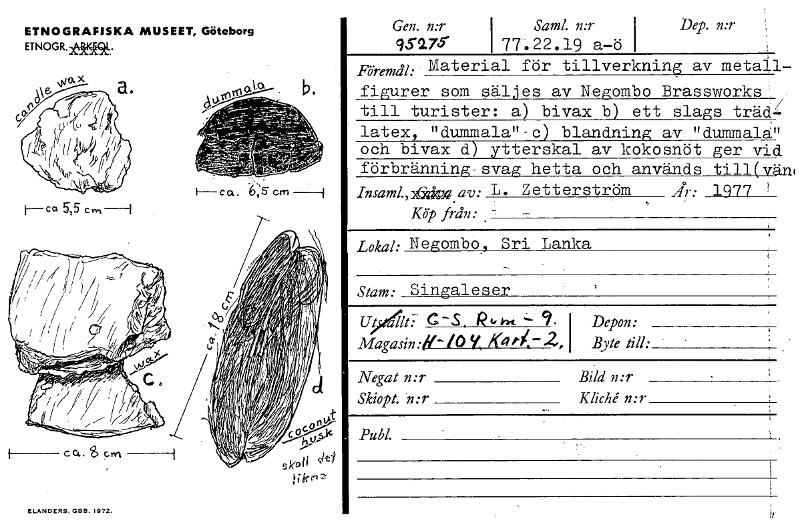 ETNOGRAFISKA MUSEET, Göteborg
ETNOGR. ARKEOL.
candle wax
a.
ca 5,5 cm
dummala
b.
ca. 6,5 cm
wax
c.
ca. 8 cm
ca. 18 cm
d
coconut
husk
skall det
likna
ELANDERS. GBB. 1972.
Gen. n:r
95275
Saml. n:r
77.22.19 a-ö
Dep. n:r
Föremål: Material för tillverkning av metall-
figurer som säljes av Negombo Brassworks
till turister: a) bivax b) ett slags träd-
latex, "dummala" c) blandning av "dummala"
och bivax d) ytterskal av kokosnöt ger vid
förbränning svag hetta och används till(vän
Insaml., Gåva av: L. Zetterström År: 1977
Köp från: - -
Lokal: Negombo, Sri Lanka
Stam: Singaleser
Utställt: G-S. Rum - 9. Depon:
Magasin: H-104. Kart.-2. Byte till:
Negat n:r Bild n:r
Skiopt. n:r Kliché n:r
Publ.